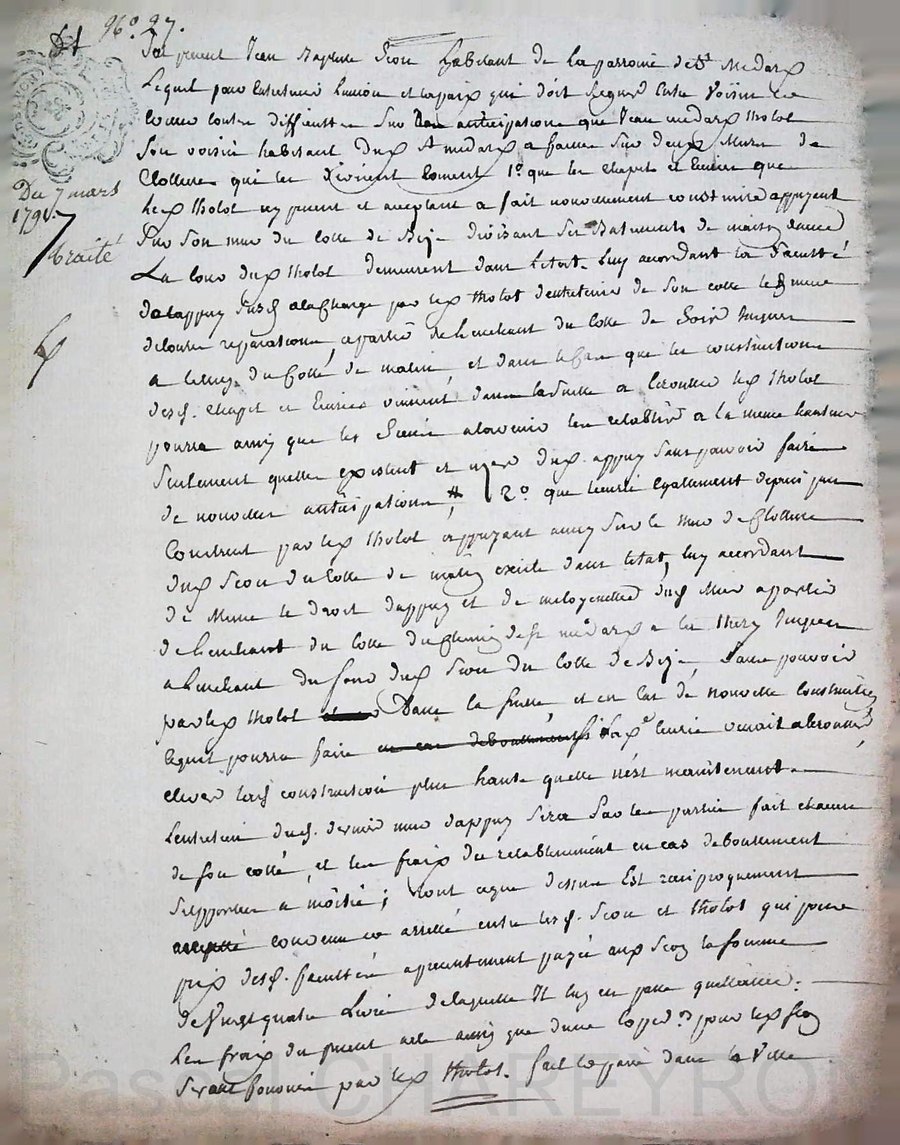 96º. 97.
Du 7 mars
1791
traité
fut present Jean Baptiste Scou habitant de la parroisse de St. Medard
Lequel pour entretenir l'union et la paix qui doit regner entre voisin
sur anticipations que Jean medard tholot
son voisin habitant dud. St medard a faittes sur deux murs de
Clotture qui les divisent Comment 1º. que les chapit et Ecuries que
led. tholot icy present et acceptant a fait nouvellement construire appuyent
sur son mur du cotté de Bize divisant ses Batiments de maison d'avec
La cour dud. tholot demeurent dans l'etat. luy accordant la faculté
de l'appuy susd. a la Charge par led. tholot d'entretenir de son cotté led. mur
de toutes reparations, a partir de l'enchant du cotté de Soir jusques
a celluy du cotté de matin, et dans le Cas que les constructions
desd. chapit et Ecuries vinssent dans la suitte a s'ecrouller led. tholot
pourra ainsy que les siens a l'avenir les retablir a la meme hauteur
seulement quelles existent et user dud. appuy sans pouvoir faire
de nouvelles anticipations, 2º. que l'ecurie egallement depuis peu
Construit par led. tholot appuyant aussy sur le mur de Clotture
dud. Scou du cotté de matin existe dans l'etat, luy accordant
de meme le droit d'appuy et de mitoyenneté dud. mur a partir
de l'enchant du cotté du Chemin de St. medard a les jusques
a l'enchant du fond dud. Scou du cotté de Bize sans pouvoir
par led. tholot dans la suitte, et en cas de nouvelle construction
lequel pourra faire si lad. Ecurie venoit a s'ecrouller
elever lad. construction plus haute quelle n'est maintenant.
L'entretien dud. dernier mur d'appuy sera par les parties fait chacune
de son cotté, et les fraix du retablissement en cas d'eboullement
supportes a moitié; tout ce que dessus Est reciproquement
convenu et arretté entre lesd. Scou et tholot qui pour
prix desd. facultés a presentement payée aux Scou la somme
de Vingt quatre Livres de laquelle Il luy en passe quittance.
Les fraix du present acte ainsy que d'une Copped. pour led. Scou
seront fournis par led. tholot. fait et passé dans la Ville
Pascal CHAREYRON